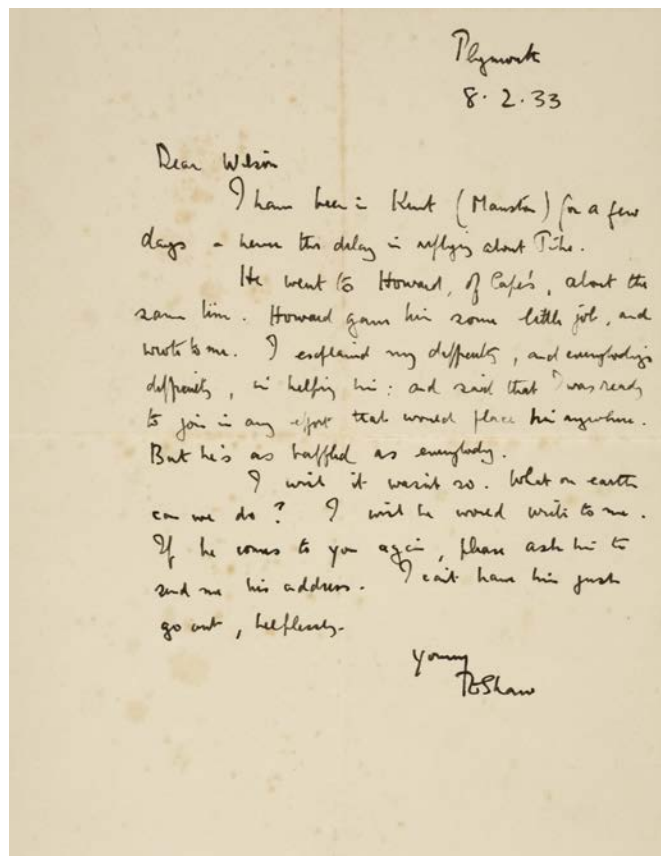 Plymouth
8.2.33
Dear Wilson
I have been in Kent (Manston) for a few
days - hence this delay in replying about Pike.
He went to Howard, of Cape's, about the
same time. Howard gave him some little job, and
wrote to me. I explained my difficulty, and everybody's
difficulty, in helping him: and said that I was ready
to join in any effort that would place him anywhere.
But he's as baffled as everybody.
I wish it wasn't so. What on earth
can we do? I wish he would write to me.
If he comes to you again, please ask him to
send me his address. I can't have him just
go out, helplessly.
Yours
TEShaw